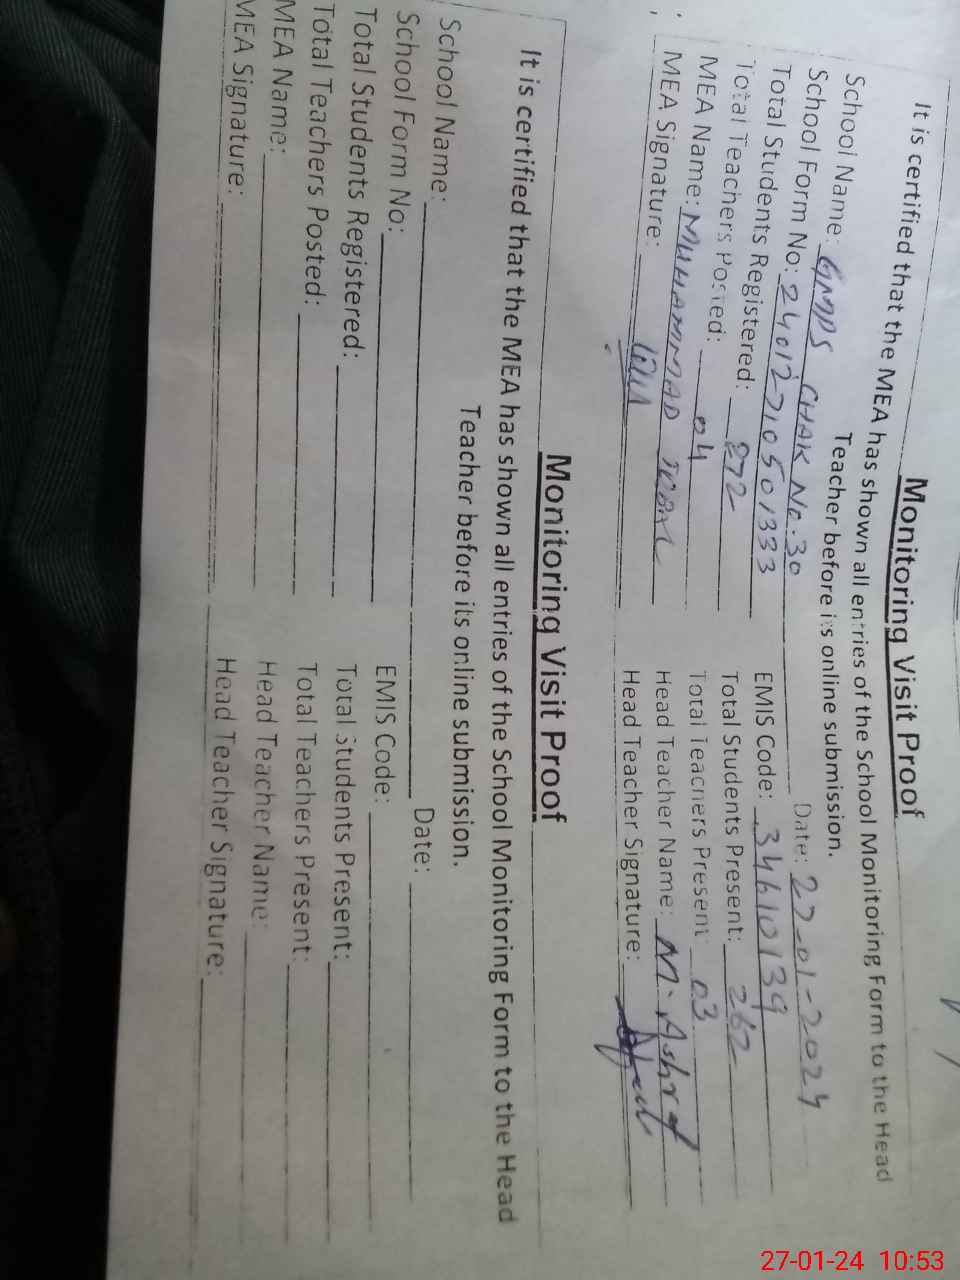 Monitoring Visit Proof
It is certified that the MEA has shown all entries of the School Monitoring Form to the Head
Teacher before its online submission.
School Name: GMPS CHAK NO.30 Date: 27-01-2024
School Form No: 24012710501333 EMIS Code: 34610139
Total Students Registered: 272 Total Students Present: 262
Total Teachers Posted: 04 Total Teachers Present: 03
MEA Name: MUHAMMAD Head Teacher Name: M. Ashraf
MEA Signature: Head Teacher Signature:
Monitoring Visit Proof
It is certified that the MEA has shown all entries of the School Monitoring Form to the Head
Teacher before its online submission.
School Name: Date:
School Form No: EMIS Code:
Total Students Registered: Total Students Present:
Total Teachers Posted: Total Teachers Present:
MEA Name: Head Teacher Name:
MEA Signature: Head Teacher Signature:
27-01-24 10:53